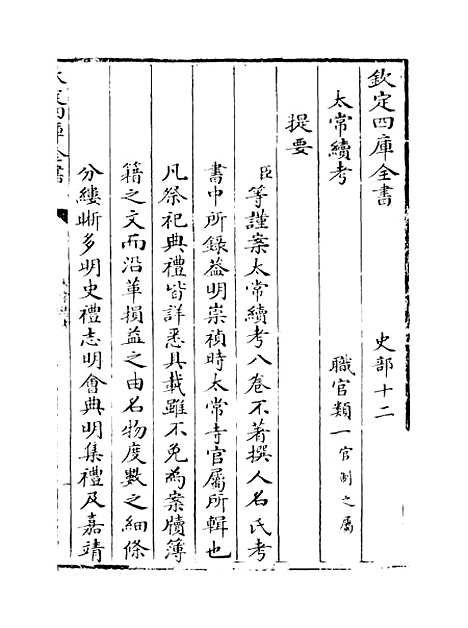 欽定四庫全書 史部十二
太常續考 職官類一官制之屬
提要
臣等謹案太常續考八卷不著撰人名氏考
書中所錄益明崇禎時太常寺官屬所輯也
凡祭祀典禮皆詳悉具載雖不免為案牘簿
籍之文而沿革損益之由名物度數之細條
分縷晰多明史禮志明會典明集禮及嘉靖